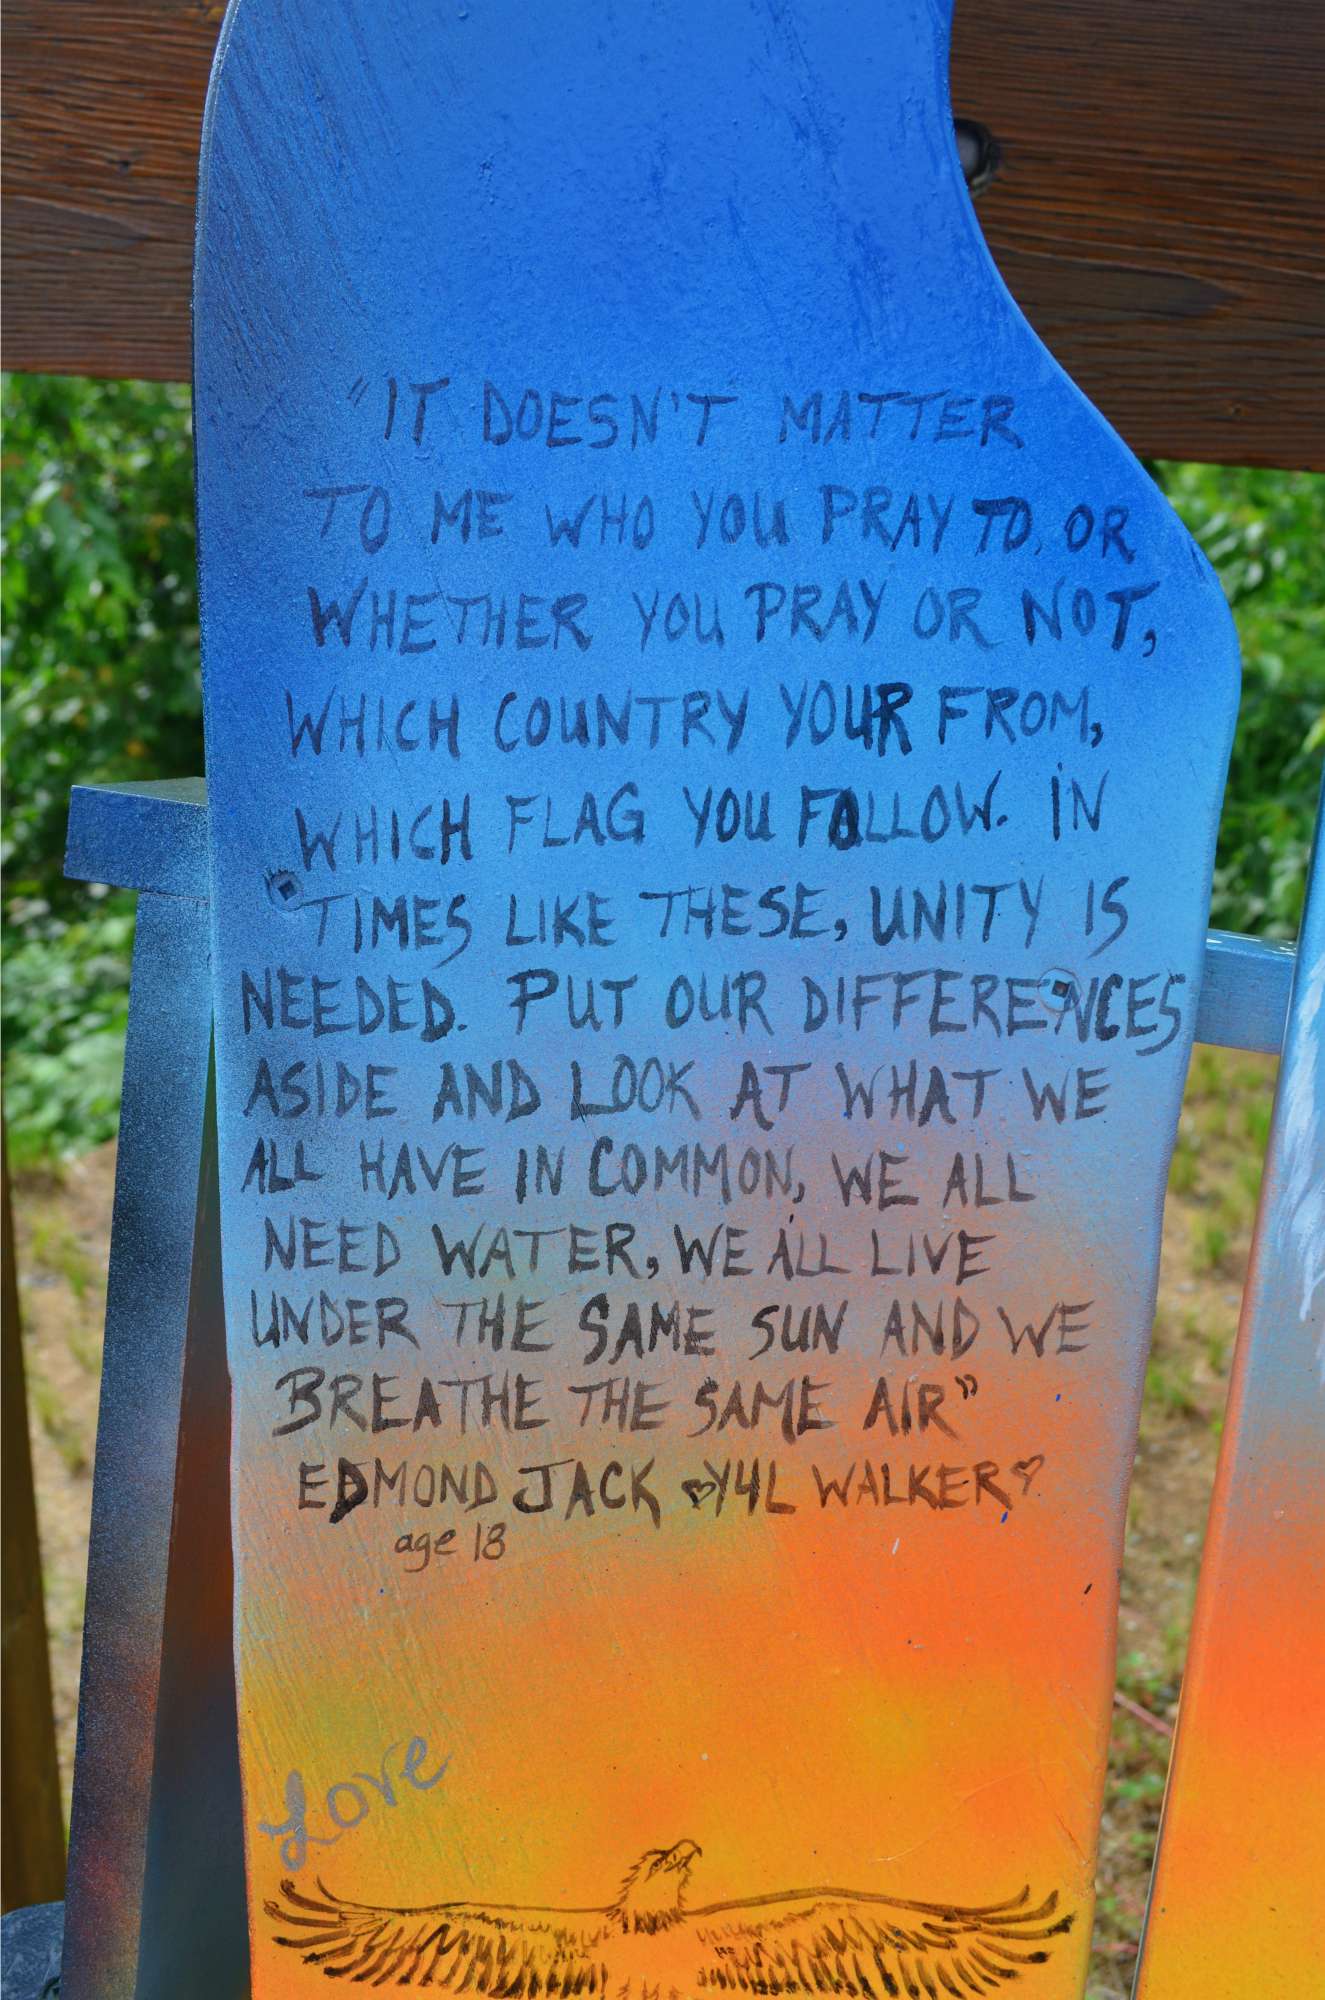 "IT DOESN'T MATTER
TO ME WHO YOU PRAY TO, OR
WHETHER YOU PRAY OR NOT,
WHICH COUNTRY YOUR FROM,
WHICH FLAG YOU FOLLOW. IN
TIMES LIKE THESE, UNITY IS
NEEDED. PUT OUR DIFFERENCES
ASIDE AND LOOK AT WHAT WE
ALL HAVE IN COMMON, WE ALL
NEED WATER, WE ALL LIVE
UNDER THE SAME SUN AND WE
BREATHE THE SAME AIR"
EDMOND JACK ♡Y4L WALKER♡
age 18
Love